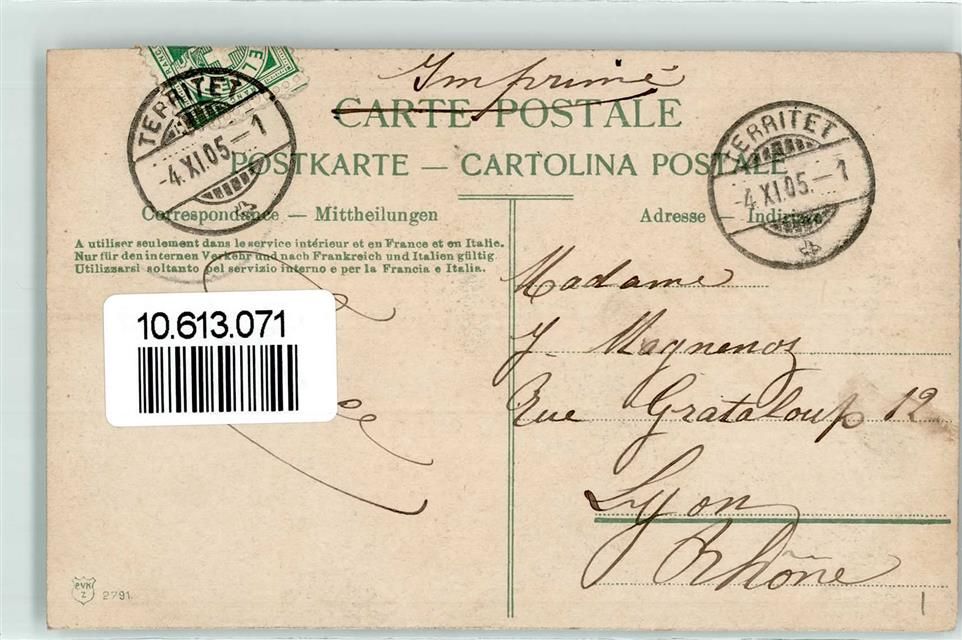 Imprimé
CARTE POSTALE
POSTKARTE — CARTOLINA POSTALE
Correspondance — Mittheilungen
A utiliser seulement dans le service intérieur et en France et en Italie.
Nur für den internen Verkehr und nach Frankreich und Italien gültig.
Utilizzarsi soltanto pel servizio interno e per la Francia e Italia.
Adresse — Indirizzo
TERRITET
-4.XI.05.-1
TERRITET
-4.XI.05.-1
10.613.071
Madame
J. Magnenoz
Rue Grataloup 12
Lyon
Rhône
PVK
Z
2791